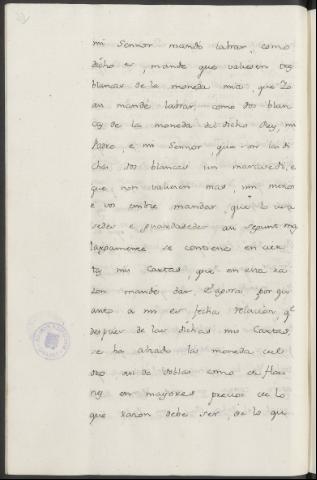 mi Sennor mandó labrar, como
dicho es, mandé que valiesen tres
blancas de la moneda mia, que Yo
assi mandé labrar, como dos blan
cas de la moneda del dicho Rey, mi
Padre, e mi Sennor, que son las di
chas dos blancas un maravedi, e
que non valiesen mas, nin menos
e vos embié mandar, que lo usa
sedes e guardasedes assi segunt mas
largamente se contiene en cier
tas mis Cartas, que en esta ra
zon mandé dar. E agora por qu
anto a mi es fecha relacion, qe
despues de las dichas mis Cartas,
se ha alzado la moneda del
oro assi de doblas como de flori
nes en mayores precios de lo
que razon debe ser, de lo qu